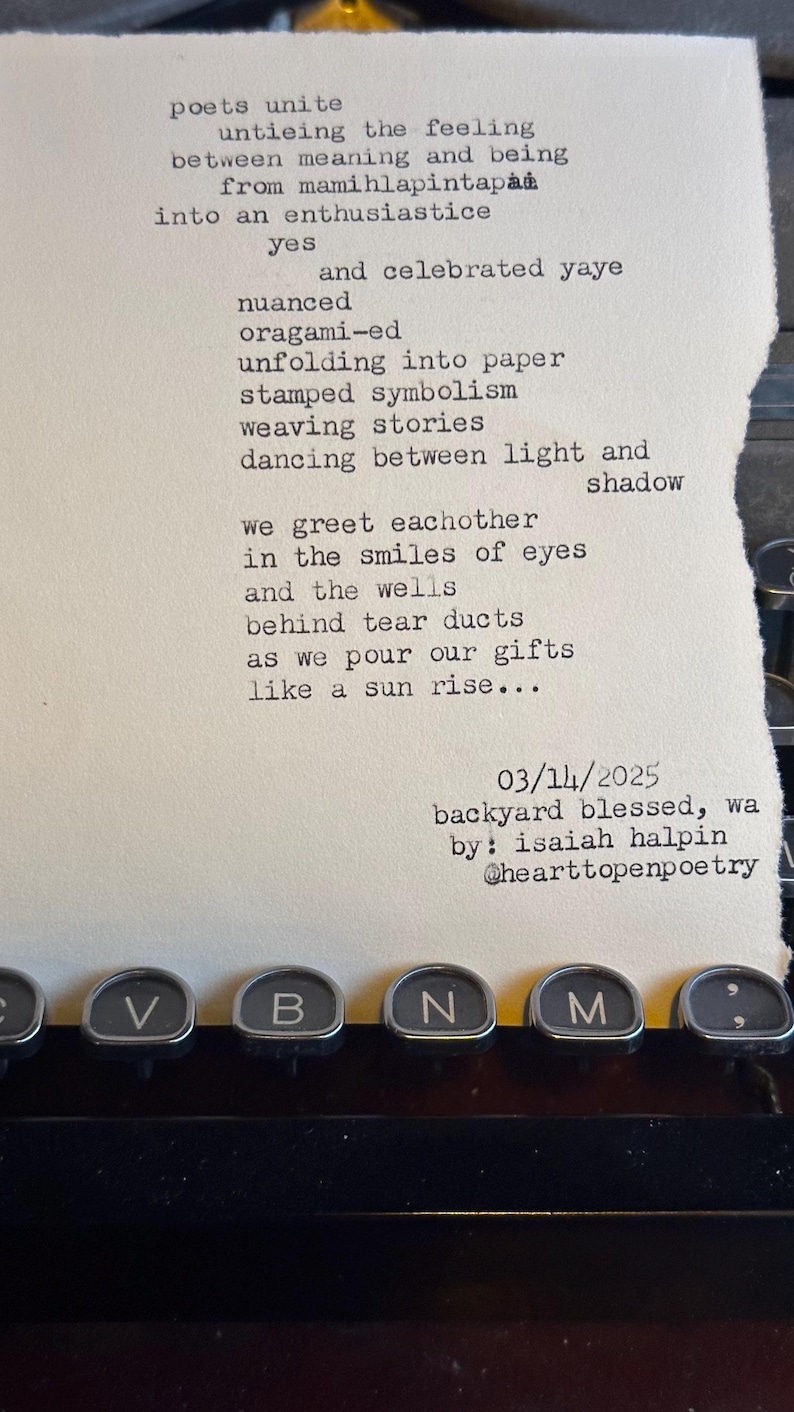 poets unite
untieing the feeling
between meaning and being
from
into an enthusiastice
yes
and celebrated yaye
nuanced
oragami-ed
unfolding into paper
stamped symbolism
weaving stories
dancing between light and
shadow
we greet eachother
in the smiles of eyes
and the wells
behind tear ducts
as we pour our gifts
like a sun rise...
03/14/2025
backyard blessed, wa
by: isaiah halpin
@hearttopenpoetry
C V B N M ; ,